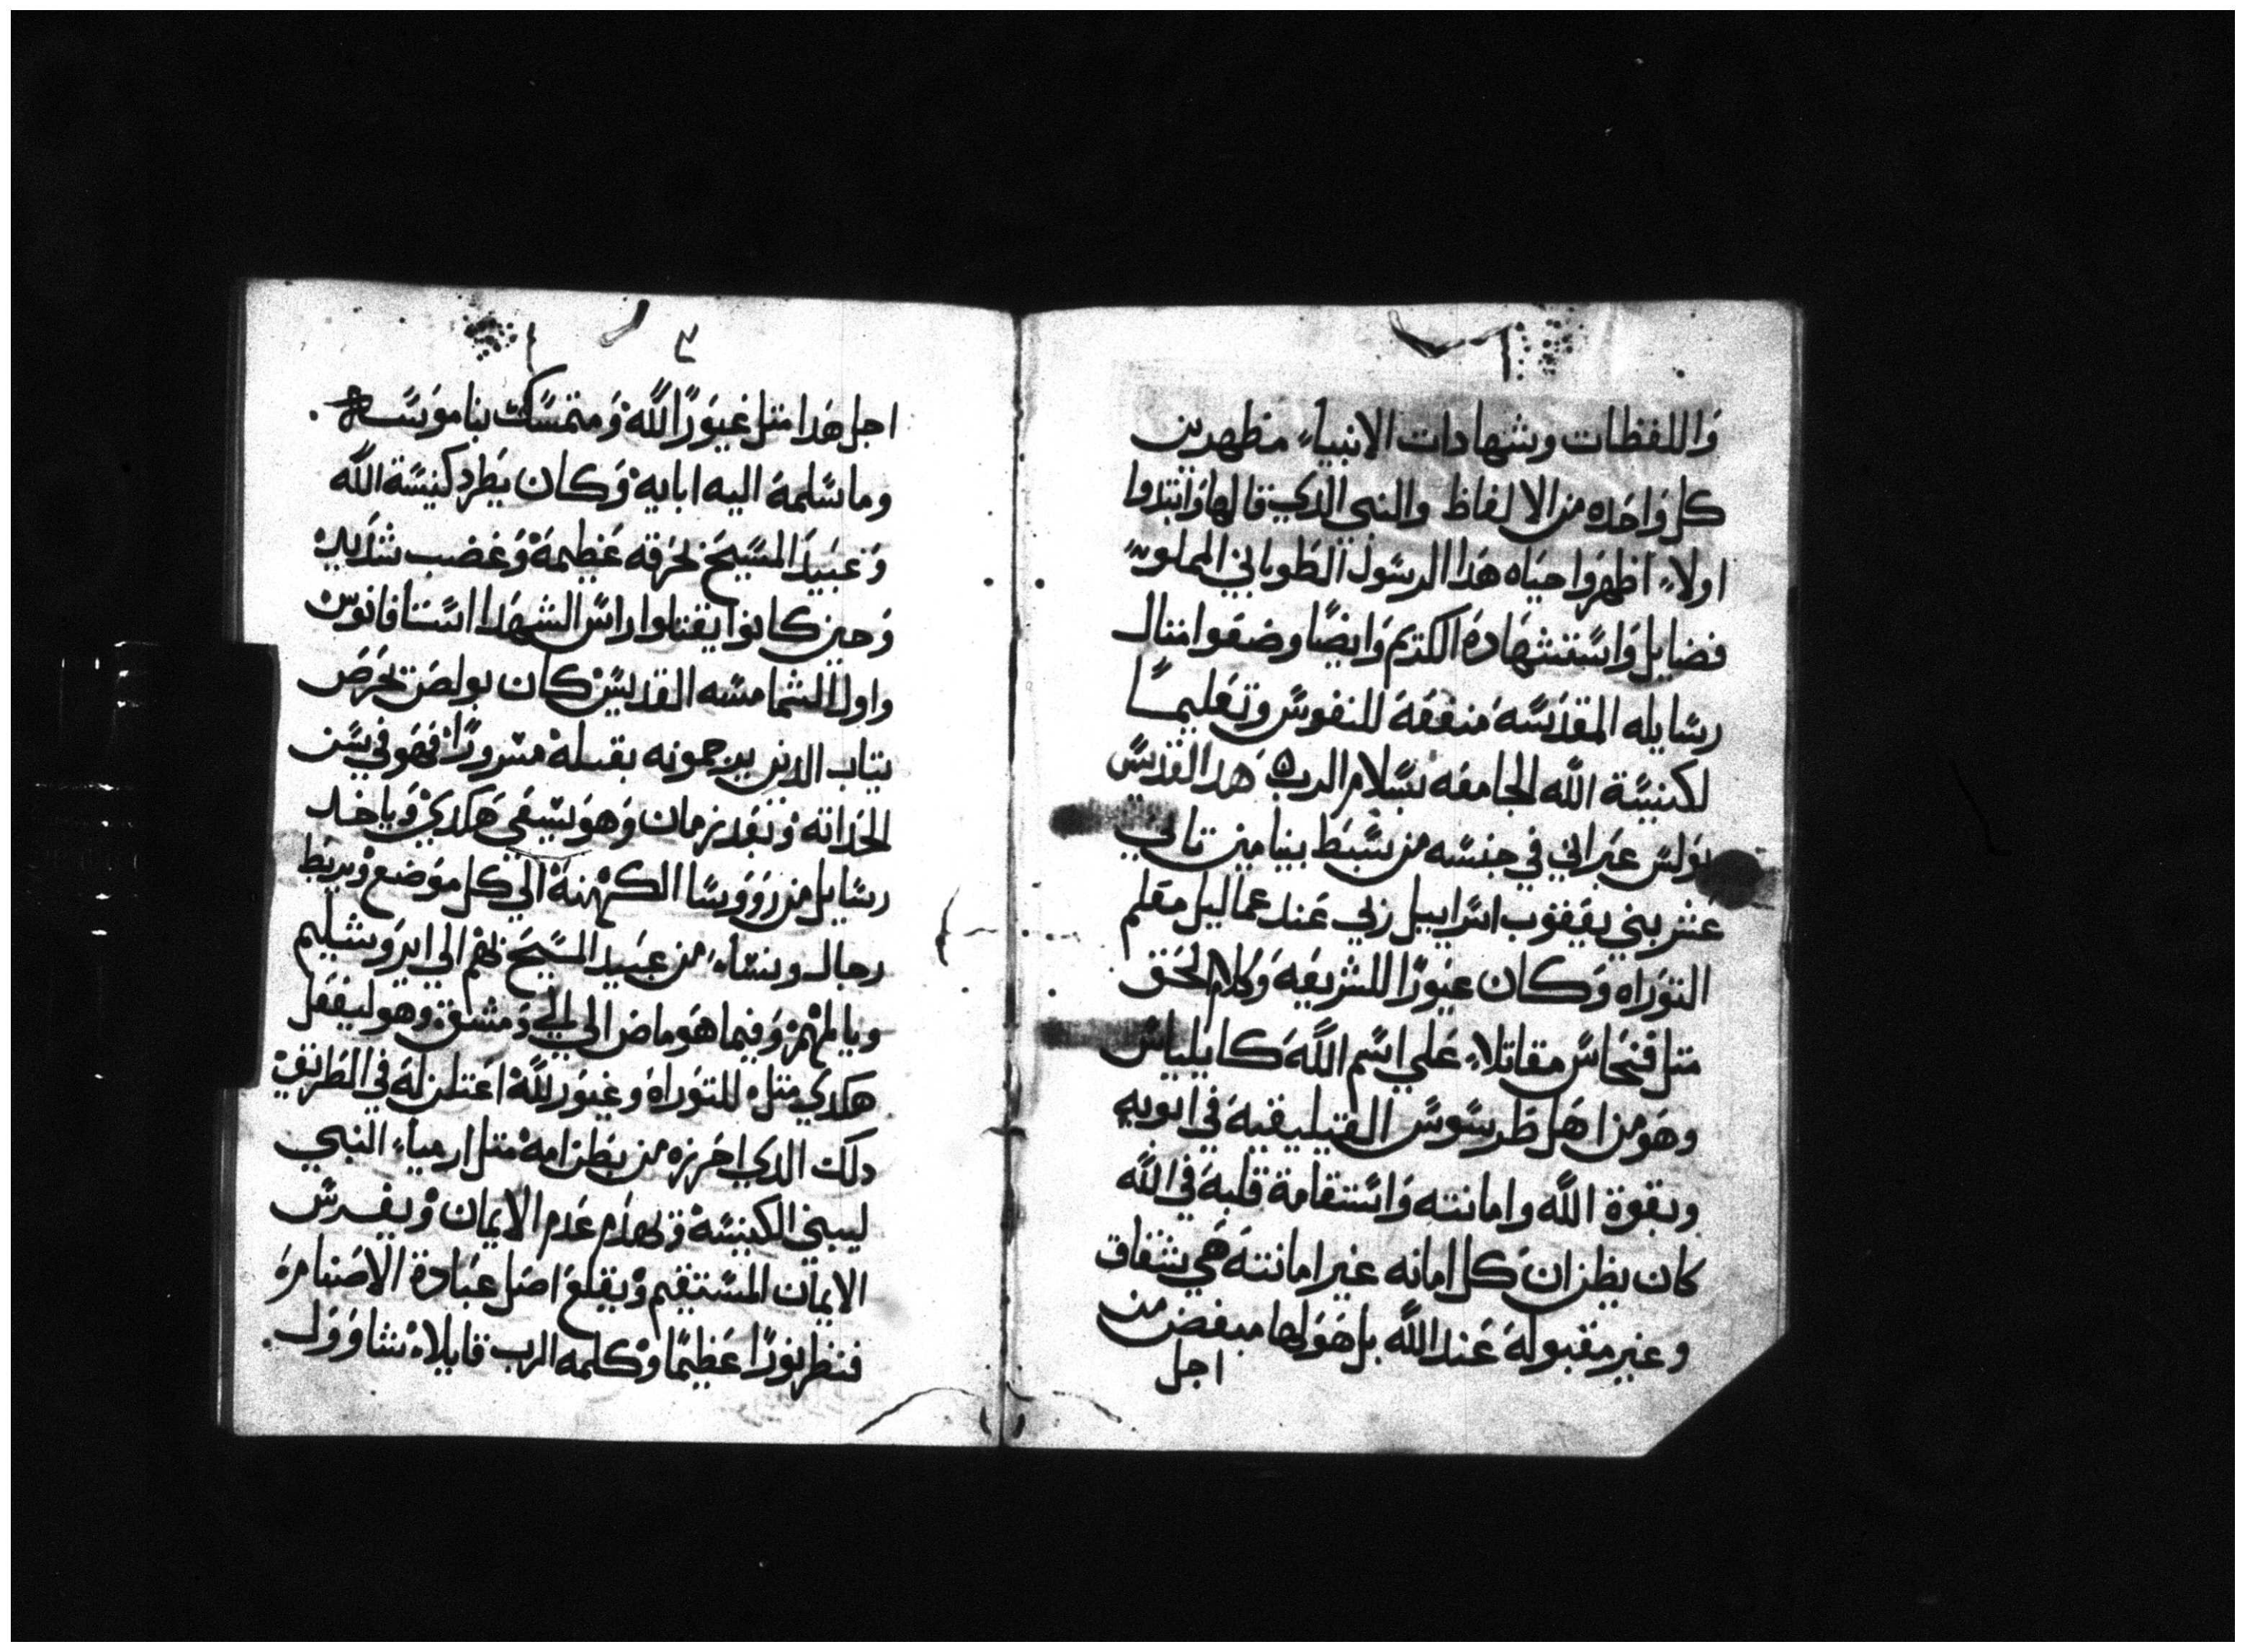 وَاللفظات وشهادات الانبياء مظهرين
كل وَاحَده من الالفاظ والنبي الدي قالها وَابتدوا
اولاً اظهرَوا حياه هَدا الرسَول الطَوباني المملوه
فضايل وَاسَتشهَادة الكريم وَايضًا وضعَوا امتال
رسَايله المقدَسَة منفعَة للنفوسَ وتعَليمًا
لكنيسَة اللَه الجامعَه بسَلام الرب هَدا القديسَ
بوَلسَ عبَراني في جنسَه من سَبَط بنيامين تاني
عَشر بني يعَقوب اسَراييل ربي عَند عمَاليل معَلم
التوَراه وَكان غيَورًا للشريعَة وَكلام الحَق
متل فنحَاسَ مقاتلاً عَلي اسَم اللَه كايلياسَ
وهَو من اهَل طَرسَوسَ القيليقية في ابويه
وبقوة اللَه وامانته وَاسَتقامة قلبة في اللَه
كان يظن ان كل امانه غير امانتة هَي شقاق
وغير مقبولة عَند اللَه بل هَو لها مبغض من
اجل
٣
اجل هَدا متل غيوَرًا للَه وَمتمسَك بناموسَه
وما سَلمة اليه ابايه وَكان يَطرد كنيسَة اللَه
وَعبَيدَ المسَيحَ بحَرقه عَظيمة وَغضب شدَيد
وَحين كانوا يقتلوا راسَ الشهَدا اسَتافانوسَ
واول الشمامسَه القديسَ كان بولصَ يحَرصَ
تياب الدين يرجمونه بقتلة مسَرورًا فهَو في سَن
الحَداتة وَبعَد زمان وَهَو يسَعَي هَكدي وَياخد
رسَايل من رَوَوسَا الكهَنة الي كل موَضع وَيربَط
رجال ونسَاء من عبَيد المسَيحَ بهَم الي ايرَوشليم
وفيما هَو ماض الي الي دَمشق وهَو ليفعَل
هكدي متله للتوَراة وغيوَر للَه اعَتلن لة في الطَريق
دلك الدي احَرزه من بَطن امة متل ارمياء النبي
ليبني الكنيسَة وَيهدَم عَدم الايمان وَيغرسَ
الايمان المسَتقيم وَيقلعَ اصَل عبَادة الاصَنام
فنظر نورًا عَظيمًا وَكلمه الرب قايلاً شاوَوَل